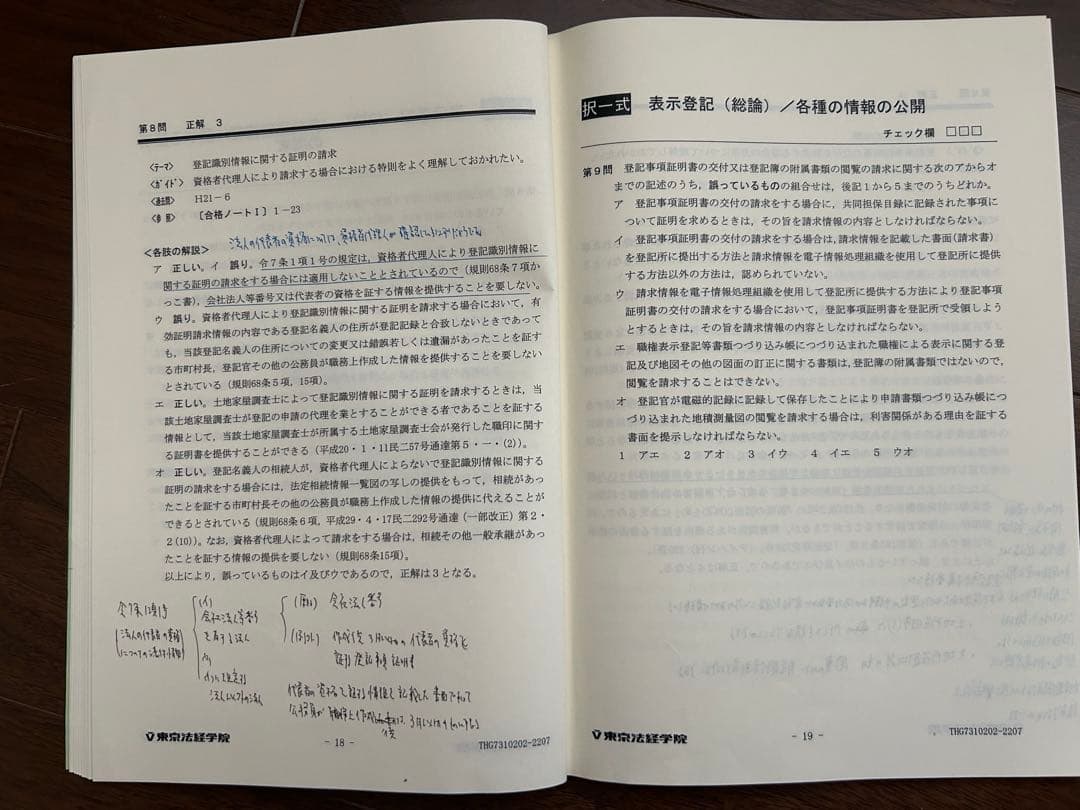 第8問　正解　3
〈テーマ〉　登記識別情報に関する証明の請求
〈ガイド〉　資格者代理人により請求する場合における特則をよく理解しておかれたい。
〈過去問〉　H21－6
〈参　照〉　〔合格ノートⅠ〕1－23
〈各肢の解説〉
ア　正しい。イ　誤り。令7条1項1号の規定は，資格者代理人により登記識別情報に
関する証明の請求をする場合には適用しないこととされているので（規則68条7項か
っこ書），会社法人等番号又は代表者の資格を証する情報を提供することを要しない。
ウ　誤り。資格者代理人により登記識別情報に関する証明を請求する場合において，有
効証明請求情報の内容である登記名義人の住所が登記記録と合致しないときであって
も，当該登記名義人の住所についての変更又は錯誤若しくは遺漏があったことを証す
る市町村長，登記官その他の公務員が職務上作成した情報を提供することを要しない
とされている（規則68条5項，15項）。
エ　正しい。土地家屋調査士によって登記識別情報に関する証明を請求するときは，当
該土地家屋調査士が登記の申請の代理を業とすることができる者であることを証する
情報として，当該土地家屋調査士が所属する土地家屋調査士会が発行した職印に関す
る証明書を提供することができる（平成20・1・11民二57号通達第5・一・(2)）。
オ　正しい。登記名義人の相続人が，資格者代理人によらないで登記識別情報に関する
証明の請求をする場合には，法定相続情報一覧図の写しの提供をもって，相続があっ
たことを証する市町村長その他の公務員が職務上作成した情報の提供に代えることが
できるとされている（規則68条6項，平成29・4・17民二292号通達（一部改正）第2・
2(10)）。なお，資格者代理人によって請求する場合は，相続その他一般承継があっ
たことを証する情報の提供を要しない（規則68条15項）。
以上により，誤っているものはイ及びウであるので，正解は3となる。
(イ)
会社法人等番号
を有する法人
会社法人番号
東京法経学院
－ 18 －
THG7310202-2207
択一式　表示登記（総論）／各種の情報の公開
チェック欄　□□□
第9問　登記事項証明書の交付又は登記簿の附属書類の閲覧の請求に関する次のアからオ
までの記述のうち，誤っているものの組合せは，後記1から5までのうちどれか。
ア　登記事項証明書の交付の請求をする場合に，共同担保目録に記録された事項に
ついて証明を求めるときは，その旨を請求情報の内容としなければならない。
イ　登記事項証明書の交付の請求をする場合は，請求情報を記載した書面（請求書）
を登記所に提出する方法と請求情報を電子情報処理組織を使用して登記所に提供
する方法以外の方法は，認められていない。
ウ　請求情報を電子情報処理組織を使用して登記所に提供する方法により登記事項
証明書の交付の請求をする場合において，登記事項証明書を登記所で受領しよう
とするときは，その旨を請求情報の内容としなければならない。
エ　職権表示登記等書類つづり込み帳につづり込まれた職権による表示に関する登
記及び地図その他の図面の訂正に関する書類は，登記簿の附属書類ではないので，
閲覧を請求することはできない。
オ　登記官が電磁的記録に記録して保存したことにより申請書類つづり込み帳につ
づり込まれた地積測量図の閲覧を請求する場合は，利害関係がある理由を証する
書面を提示しなければならない。
1　アエ　　2　アオ　　3　イウ　　4　イエ　　5　ウオ
東京法経学院
－ 19 －
THG7310202-2207